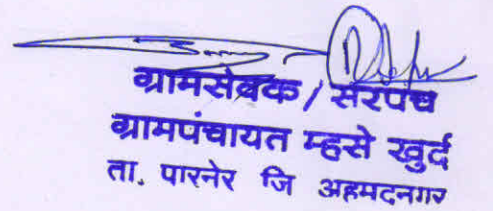 ग्रामसेवक / सरपंच
ग्रामपंचायत म्हसे खुर्द
ता. पारनेर जि अहमदनगर